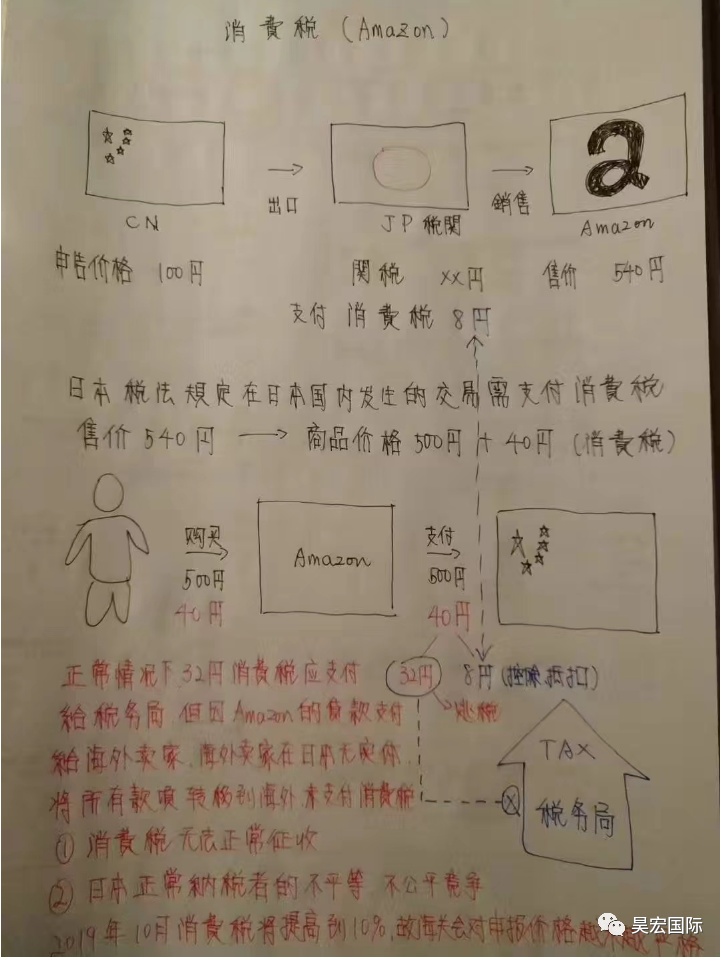 消費税 (Amazon)
出口
銷售
CN
JP 税関
Amazon
申告价格 100円
関税 XX円
售价 540円
支付 消費税 8円
日本税法規定在日本国内发生的交易需支付消費税
售价 540円 → 商品价格 500円 + 40円 (消費税)
购买
500円
40円
Amazon
支付
500円
40円
正常情况下 32円消費税应支付
32円
8円 (控除抵扣)
給税务局,但因Amazon的貨款支付
逃税
給海外卖家,海外卖家在日本无
TAX
将所有款项转移到海外未支付消費税
X
税务局
① 消費税无法正常征收
② 日本正常納税者的不平等 不公平竞争
2019年10月消費税将提高到10%,故海关会对申报价格
昊宏国际